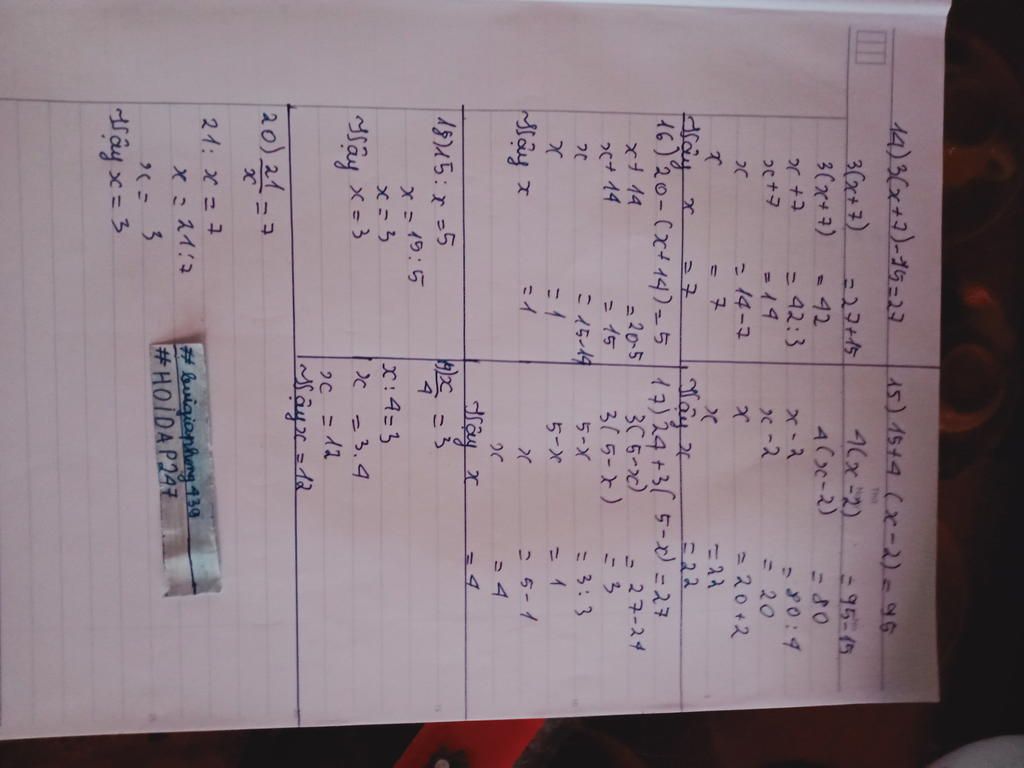 14) 3(x+7)-15=27
3(x+7) = 27+15
3(x+7) = 42
x+7 = 42:3
x+7 = 14
x = 14-7
x = 7
Vậy x = 7
15) 15+4 (x-2) = 95
4(x-2) = 95-15
4(x-2) = 80
x-2 = 80:4
x-2 = 20
x = 20+2
x = 22
Vậy x = 22
16) 20-(x+14)=5
x+14 = 20-5
x+14 = 15
x = 15-14
x = 1
Vậy x = 1
17) 24+3(5-x)=27
3(5-x) = 27-24
3(5-x) = 3
5-x = 3:3
5-x = 1
x = 5-1
x = 4
Vậy x = 4
18) 15:x=5
x=15:5
x=3
Vậy x=3
19) x/4 = 3
x:4=3
x = 3.4
x = 12
Vậy x=12
20) 21/x = 7
21:x = 7
x = 21:7
x = 3
Vậy x = 3
#HOIDAP247